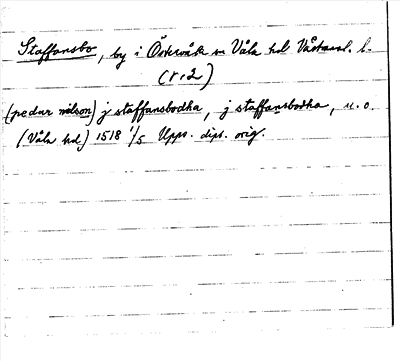 Staffansbo, by i Östervåla sn Våla hd Västmanl. l.
(r.2)
(pedar nilson) j staffansbodha, j staffansbodha, u.o.
(Våla hd) 1518 1/5 Upps. dipl. orig.